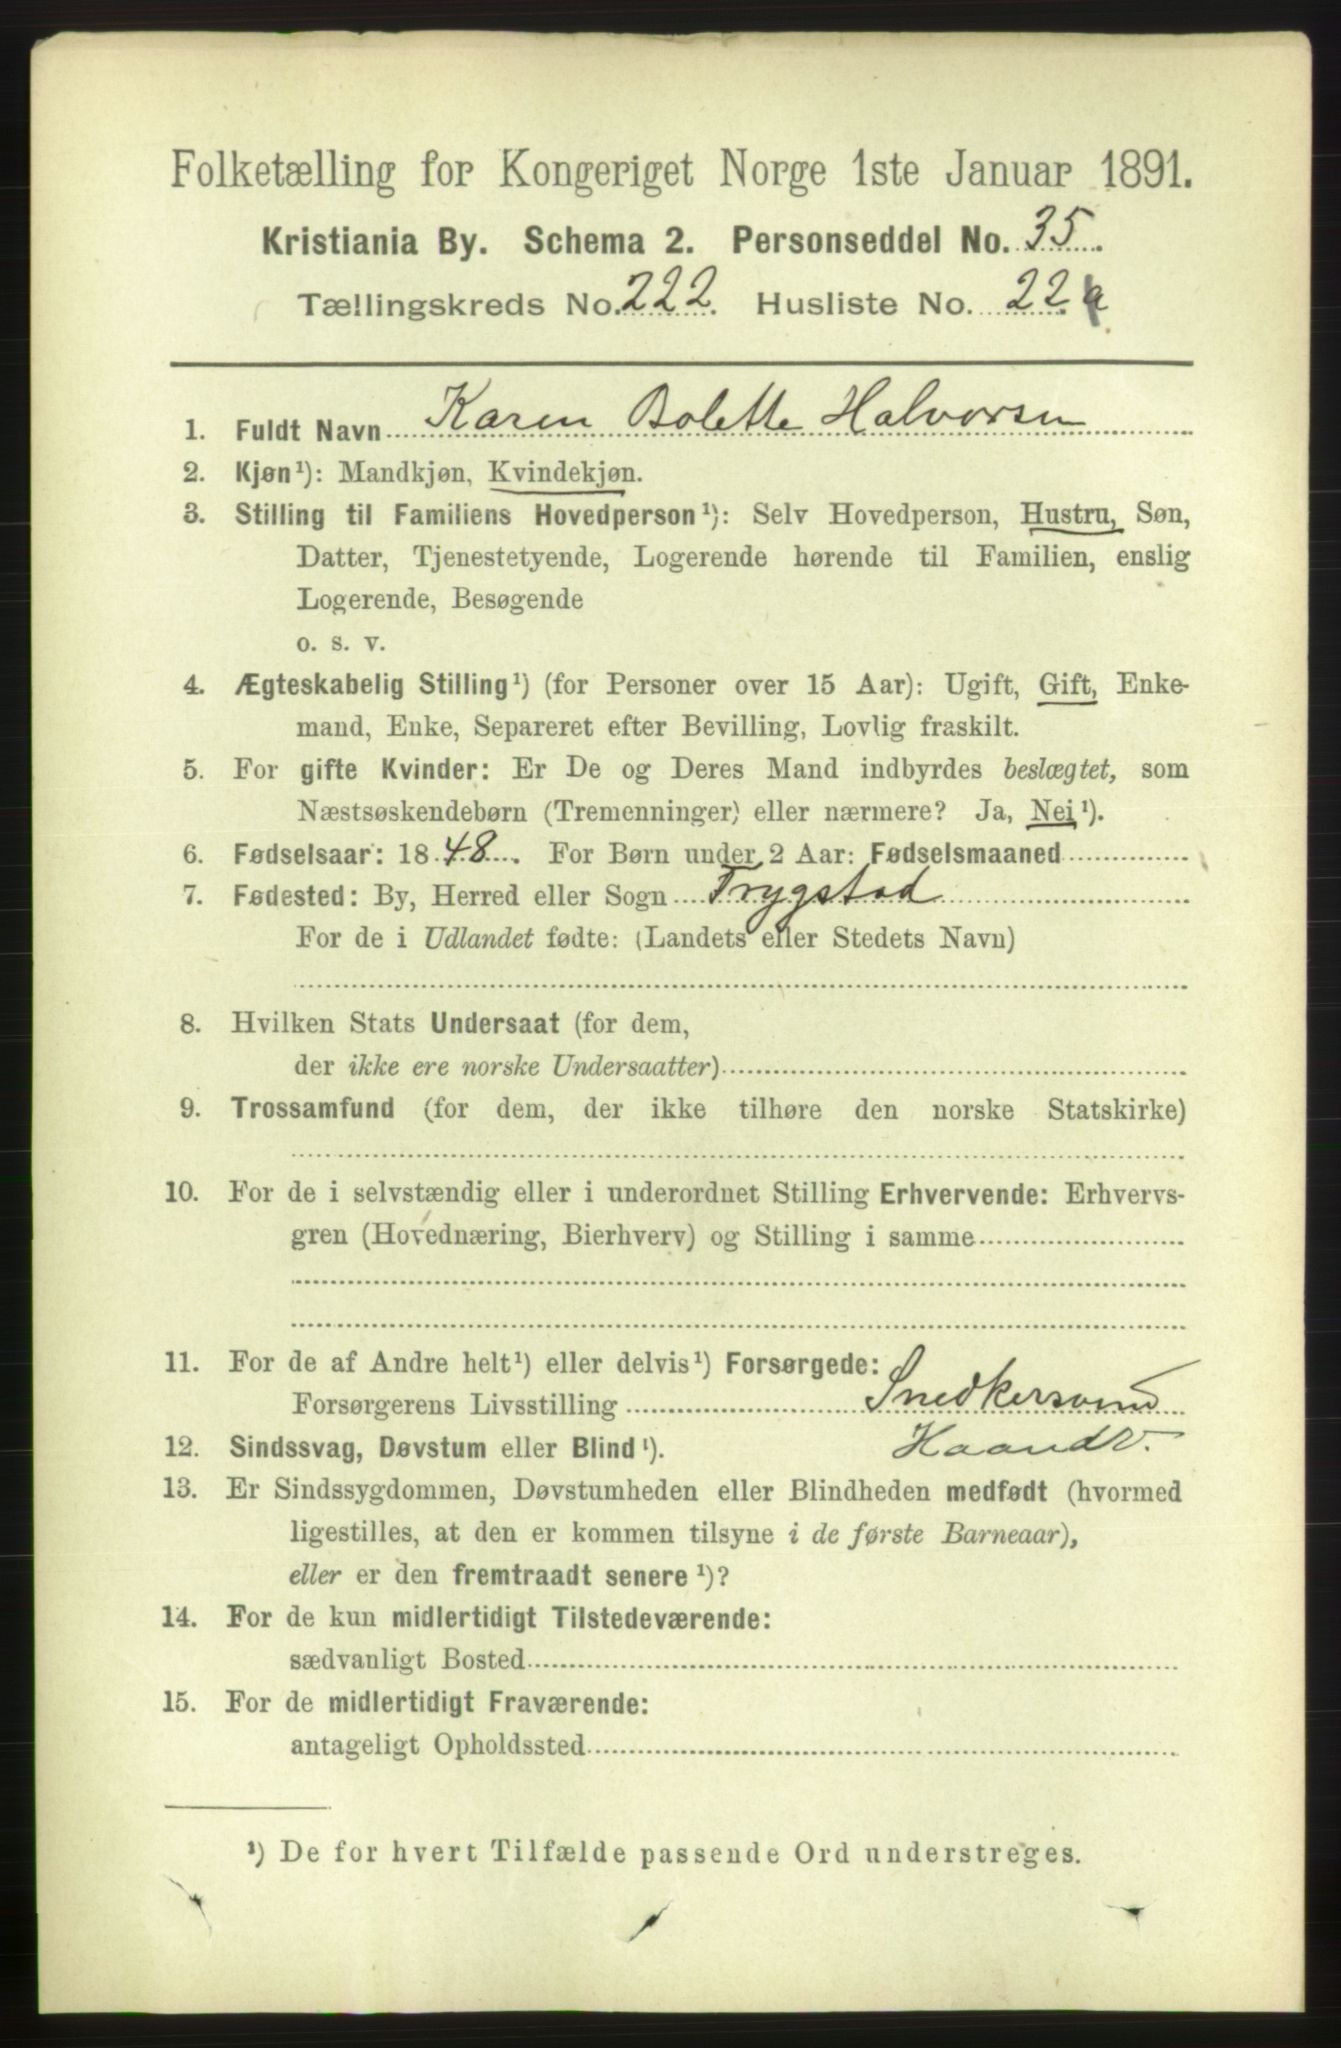 Folketælling for Kongeriget Norge 1ste Januar 1891.
Kristiania By. Schema 2. Personseddel No. 35.
Tællingskreds No. 222. Husliste No. 22.a
1. Fuldt Navn Karen Bolette Halvorsen
2. Kjøn¹): Mandkjøn, Kvindekjøn.
3. Stilling til Familiens Hovedperson¹): Selv Hovedperson, Hustru, Søn,
Datter, Tjenestetyende, Logerende hørende til Familien, enslig
Logerende, Besøgende
o. s. v.
4. Ægteskabelig Stilling¹) (for Personer over 15 Aar): Ugift, Gift, Enke-
mand, Enke, Separeret efter Bevilling, Lovlig fraskilt.
5. For gifte Kvinder: Er De og Deres Mand indbyrdes beslægtet, som
Næstsøskendebørn (Tremenninger) eller nærmere? Ja, Nei¹).
6. Fødselsaar: 1848. For Børn under 2 Aar: Fødselsmaaned
7. Fødested: By, Herred eller Sogn Trygstad
For de i Udlandet fødte: (Landets eller Stedets Navn)
8. Hvilken Stats Undersaat (for dem,
der ikke ere norske Undersaatter)
9. Trossamfund (for dem, der ikke tilhøre den norske Statskirke)
10. For de i selvstændig eller i underordnet Stilling Erhvervende: Erhvervs-
gren (Hovednæring, Bierhverv) og Stilling i samme
11. For de af Andre helt¹) eller delvis¹) Forsørgede:
Forsørgerens Livsstilling Snedkersvend
Haandv.
12. Sindssvag, Døvstum eller Blind¹).
13. Er Sindssygdommen, Døvstumheden eller Blindheden medfødt (hvormed
ligestilles, at den er kommen tilsyne i de første Barneaar),
eller er den fremtraadt senere¹)?
14. For de kun midlertidigt Tilstedeværende:
sædvanligt Bosted
15. For de midlertidigt Fraværende:
antageligt Opholdssted
¹) De for hvert Tilfælde passende Ord understreges.